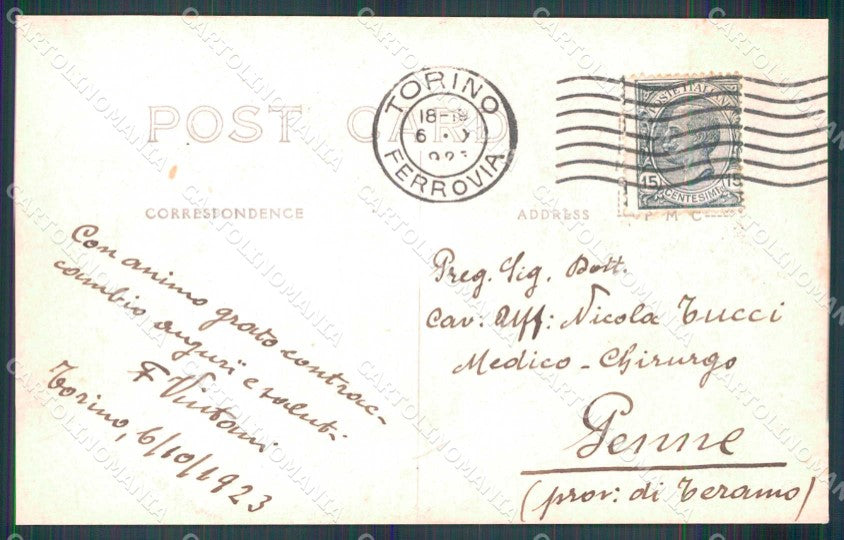 POST CARD
TORINO
18-19
6 · X
1923
FERROVIA
POSTE ITALIANE
15 15
CENTESIMI
CORRESPONDENCE
ADDRESS
P M C
Con animo grato contrac-
cambio augurii e saluti
Torino, 6/10/1923
Preg. Sig. Dott.
Cav: Uff: Nicola Tucci
Medico-Chirurgo
Penne
(prov: di Teramo)
CARTOLINOMANIA